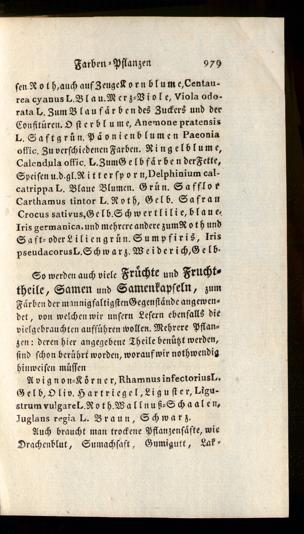 Farben-Pflanzen 979
ſen Roth, auch auf Zeuge Kornblume, Centau-
rea cyanus L. Blau. Merz-Viole, Viola odo-
rata L. Zum Blaufärben des Zuckers und der
Confitüren. Oſterblume, Anemone pratensis
L. Saftgrün. Päonienblumen Paeonia
offic. Zu verſchiedenen Farben. Ringelblume,
Calendula offic. L. Zum Gelbfärben der Fette,
Speiſen u. d. gl. Ritterſporn, Delphinium cal-
catrippa L. Blaue Blumen. Grün. Safflor
Carthamus tinctor L. Roth, Gelb. Safran
Crocus sativus, Gelb. Schwertlilie, blaue,
Iris germanica. und mehrere andere zum Roth und
Saft- oder Liliengrün. Sumpfiris, Iris
pseudacorus L. Schwarz. Weiderich, Gelb.
So werden auch viele Früchte und Frucht-
theile, Samen und Samenkapſeln, zum
Färben der mannigfaltigſten Gegenſtände angewen-
det, von welchen wir unſern Leſern ebenfalls die
vielgebrauchten aufführen wollen. Mehrere Pflan-
zen: deren hier angegebene Theile benützt werden,
ſind ſchon berührt worden, worauf wir nothwendig
hinweiſen müſſen
Avignon-Körner, Rhamnus infectorius L.
Gelb, Oliv. Hartriegel, Liguſter, Ligu-
strum vulgare L. Roth. Wallnuß-Schaalen,
Juglans regia L. Braun, Schwarz.
Auch braucht man trockene Pflanzenſäfte, wie
Drachenblut, Sumachſaft, Gumigutt, Lak-